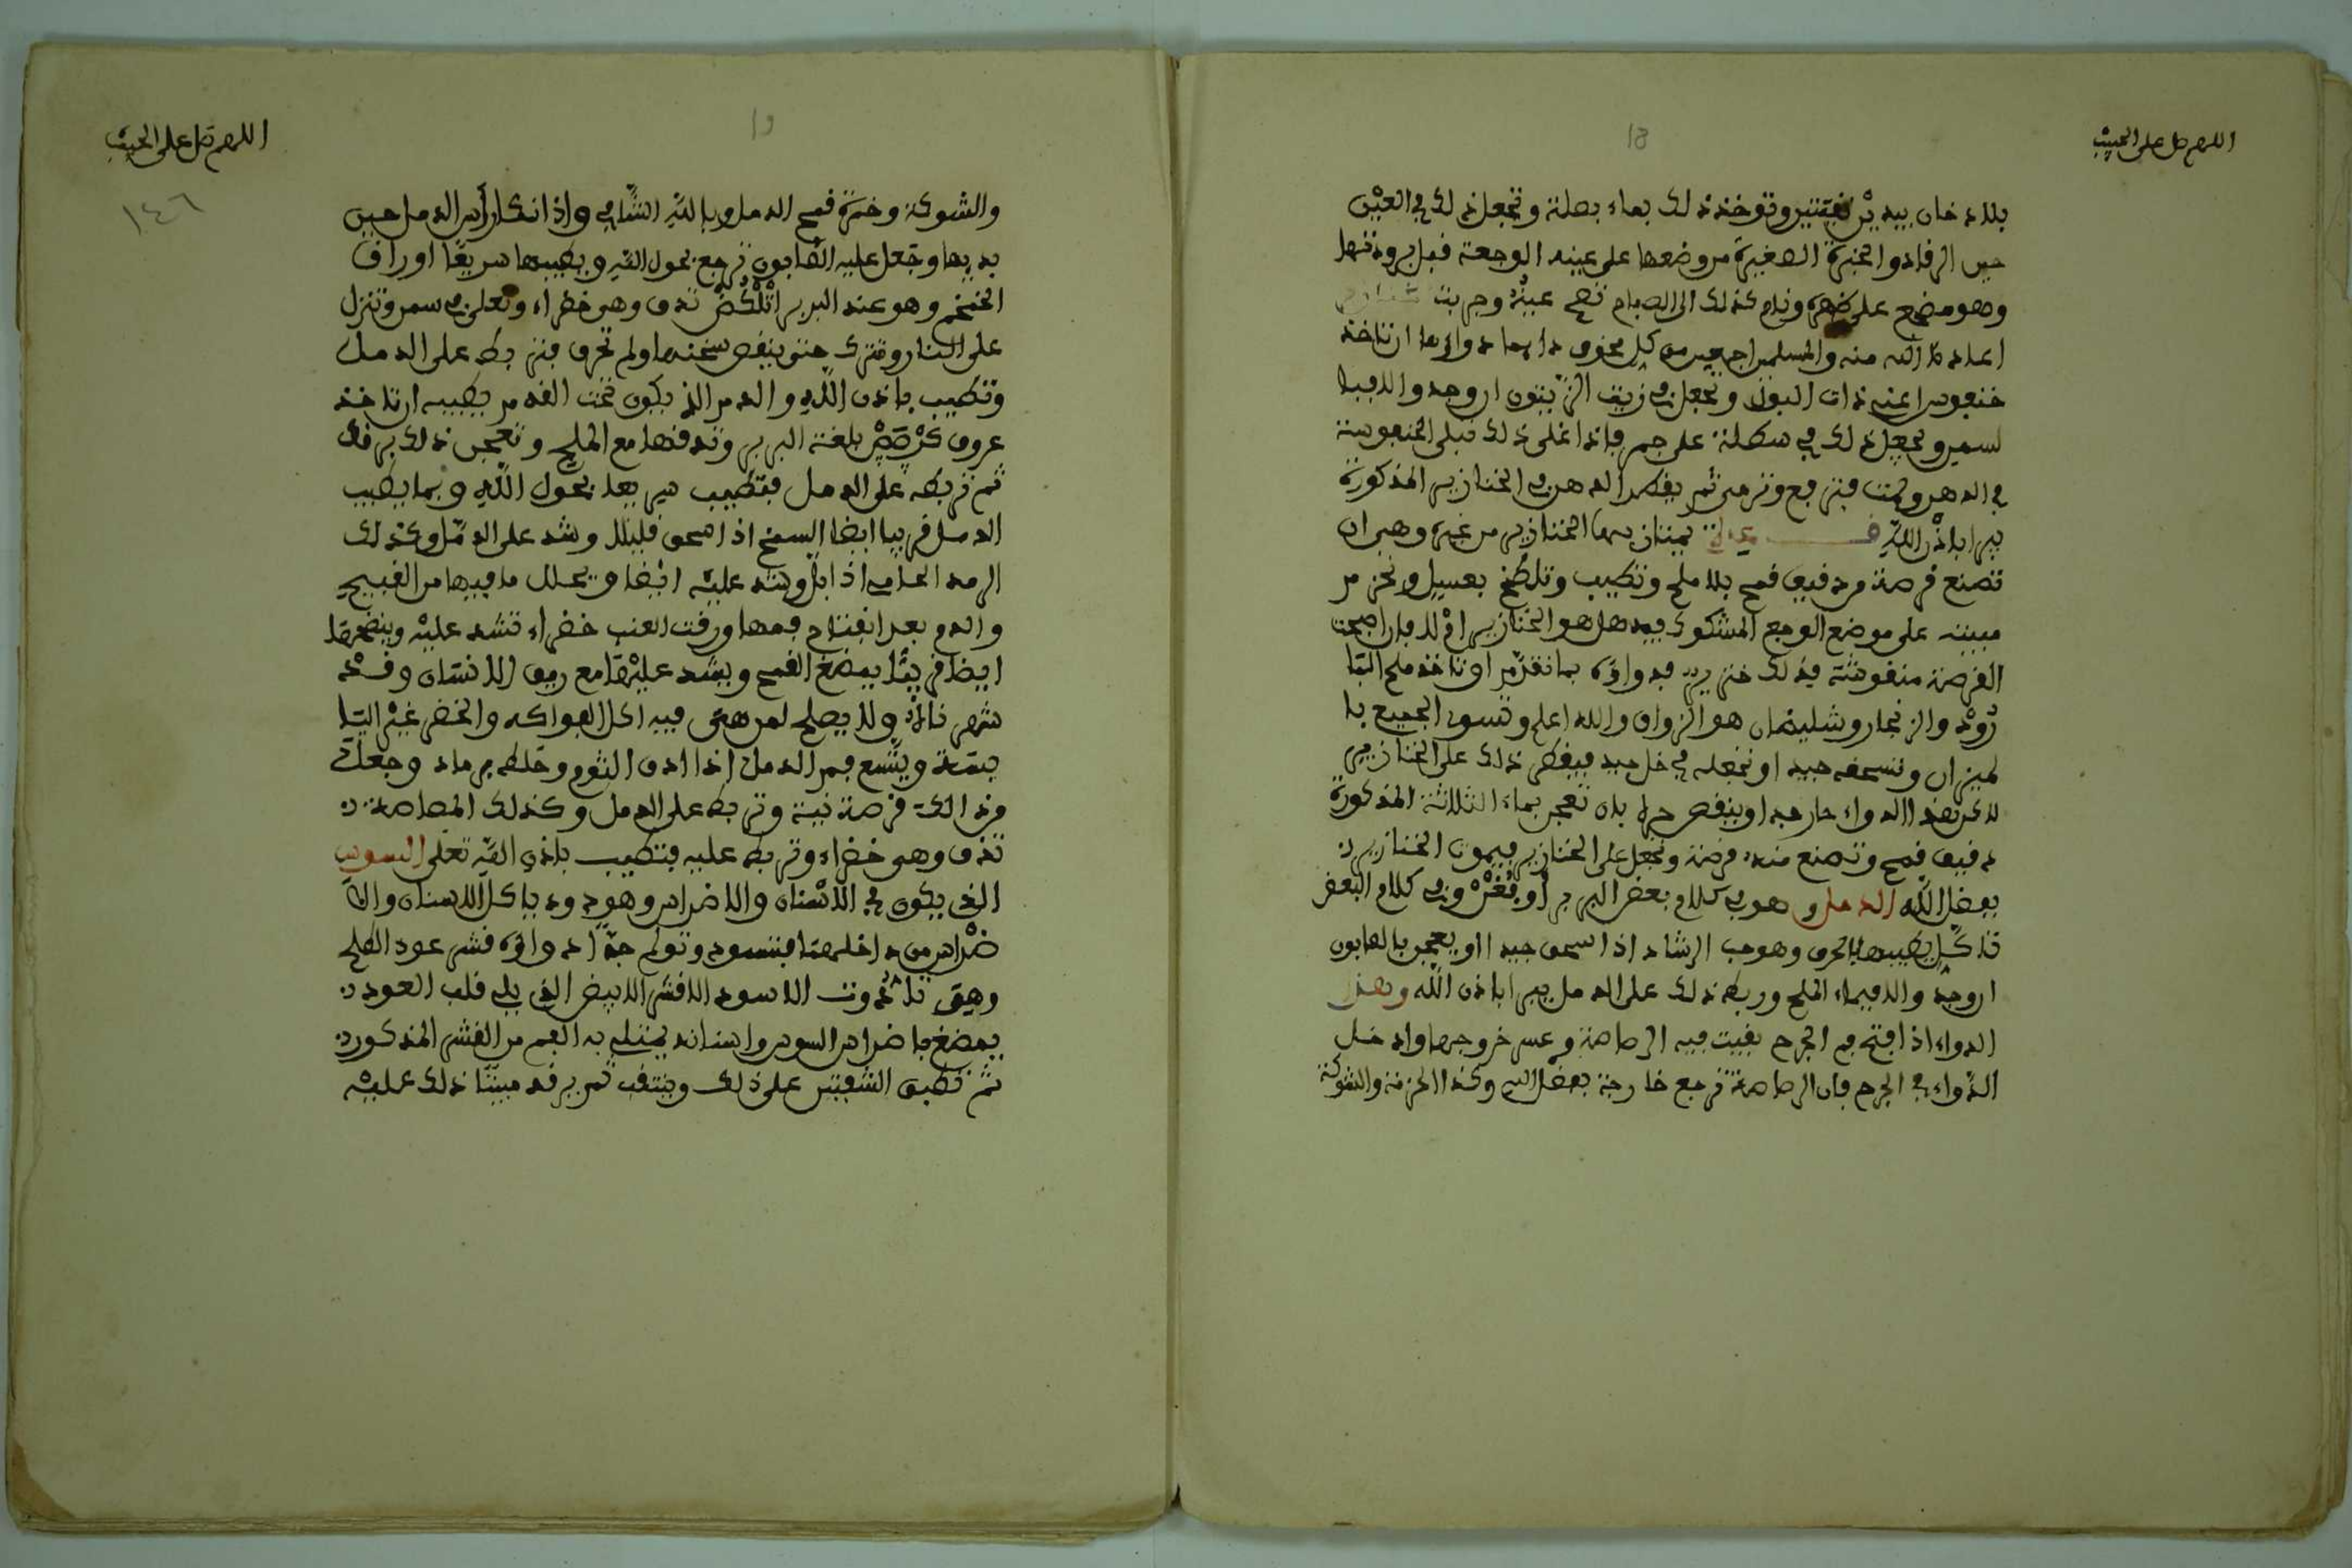 اللهم صل على الحبيب
18
بلا دخان بيدين نقيتين وتوخذ ذلك بماء بصلة وتجعل ذلك في العين
حين الرقاد والخبزة الصغيرة من وضعها على عينه الوجعة قبل برودتها
وهو مضجع على ظهره ونام كذلك الى الصباح تصح عينه وجربت
اعاذنا الله منه والمسلمين اجمعين من كل مخوف دايما دواؤها ان تاخذ
خنفوس اعني ذات البول وتجعل في زيت الزيتون ان وجد والا فبا
لسمن وتجعل ذلك في على جمر فاذا غلى ذلك تبلى الخنفوسة
في الدهن وتمت فترفع وترمى ثم يقطر الدهن في الخنازير المذكورة
يبرا باذن الله يمتاز بها الخنازير من غيره وهي ان
تصنع قرصة من دقيق قمح بلا ملح وتطيب وتلطخ بعسل ونحن من
مبيته على موضع الوجع المشكوك فيه هل هو الخنازير ام لا فان اصبحت
القرصة منقوشة فذلك خنزير فدواؤه بما تقدم او تاخذ ملح البا
رود والزنجار وشليمان هو الزواق والله اعلم وتسوى الجميع با
لميزان وتسحقه جيد او تجعله في خل جيد فيقطر ذلك على الخنازير
لاكن هذا الدواء حار جدا وينقص حره بان تعجن بماء الثلاثة المذكورة
دقيق قمح وتصنع منه قرصة وتجعل على الخنازير فيموت الخنازير
بفضل الله الدمل وهو في كلام بعض البربر وفي كلام البعض
تاكل يطيبها الحرف وهو حب الرشاد اذا سحق جيدا او يعجن بالصابون
ان وجد والا فبماء الملح وربط ذلك على الدمل يبرا باذن الله وهذا
الدواء اذا افتح فم الجرح بقيت فيه الرصاصة وعسر خروجها وادخل
الدواء في الجرح فان الرصاصة ترجع خارجة بفضل الله وكذا الحزمة والشوكة
اللهم صل على الحبيب
19
١٤٦
والشوكة وخبزة قمح الدمل وبالله الشافي واذا نكا راس الدمل حين
بديها وجعل عليه الصابون ترجع بحول الله ويطيبها سريعا اوراق
وهو عند البربر تدق وهي خضراء وتغلى في سمن وتنزل
على النار وتترك حتى ينقص سخنها ولم تحرق فتربط على الدمل
وتطيب باذن الله والدمل الذي يكون تحت القدم يطيبه ان تاخذ
عروق بلغة البربر وتدقها مع الملح وتعجن ذلك
ثم تربطه على الدمل فتطيب سريعا بحول الله وبما يطيب
الدمل قريبا ايضا السمغ اذا سحق فليبلل وشد على الدمل وكذلك
الرمد الحامي اذا ابل وشد عليه ايضا ويحلل ما فيها من القيح
والدم بعد افتتاح فمها ورقت العنب خضراء تشد عليه وينضجها
ايضا قريبا يمضغ القمح ويشد عليها مع ريق الانسان
ولا يصلح لمرضى فيه اكل الفواكه والخضر غير اليا
بسة ويتسع فم الدمل اذا ادق الثوم وخلط برماد وجعلت
من ذالك قرصة نية وتربط على الدمل وكذلك
تدق وهي خضراء وتربط عليه فتطيب باذن الله تعلى السوس
الذي يكون في الاسنان والاضراس وهو دود ياكل الاسنان والا
ضراس من داخلها فتسود وتولم جدا دواؤه قشر عود الطلح
وهي الاسود لا قشر الابيض الذي يلي قلب العود
يمضغ باضراس السوس واسنانه يمتلي به الفم من القشر المذكور
ثم تطبق الشفتين على ذلك ثم يرقد مبيتا ذلك عليه